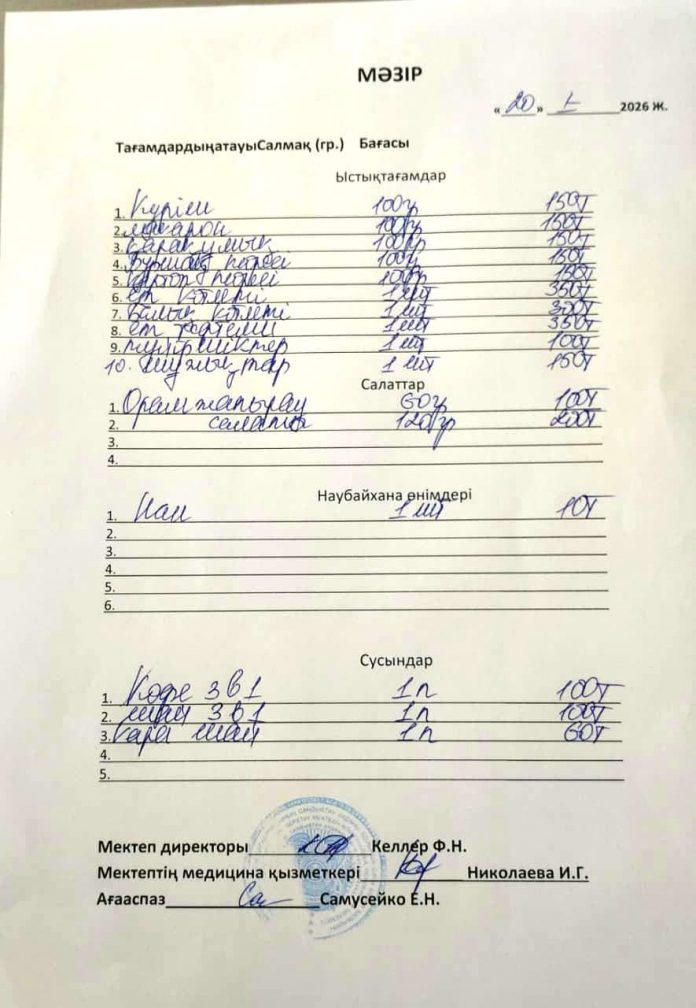 МӘЗІР
«20» I 2026 Ж.
ТағамдардыңатауыСалмақ (гр.) Бағасы
Ыстықтағамдар
1. Күріш 100гр 150т
2. макарон 100гр 150т
3. қарақұмық 100гр 150т
4. Бұршақ пюреі 100гр 150т
5. картоп пюреі 100гр 150т
6. ет котлеті 1 шт 350т
7. балық котлеті 1 шт 300т
8. ет тефтели 1 шт 350т
9. 1 шт 100т
10. шұжықтар 1 шт 150т
Салаттар
1. Орамжапырақ 60гр 100т
2. салаты 120гр 200т
3.
4.
Наубайхана өнімдері
1. Нан 1 шт 10т
2.
3.
4.
5.
6.
Сусындар
1. Кофе 3 в 1 1п 100т
2. шай 3 в 1 1п 100т
3. қара шай 1п 60т
4.
5.
Мектеп директоры Келлер Ф.Н.
Мектептің медицина қызметкері Николаева И.Г.
Ағааспаз Самусейко Е.Н.